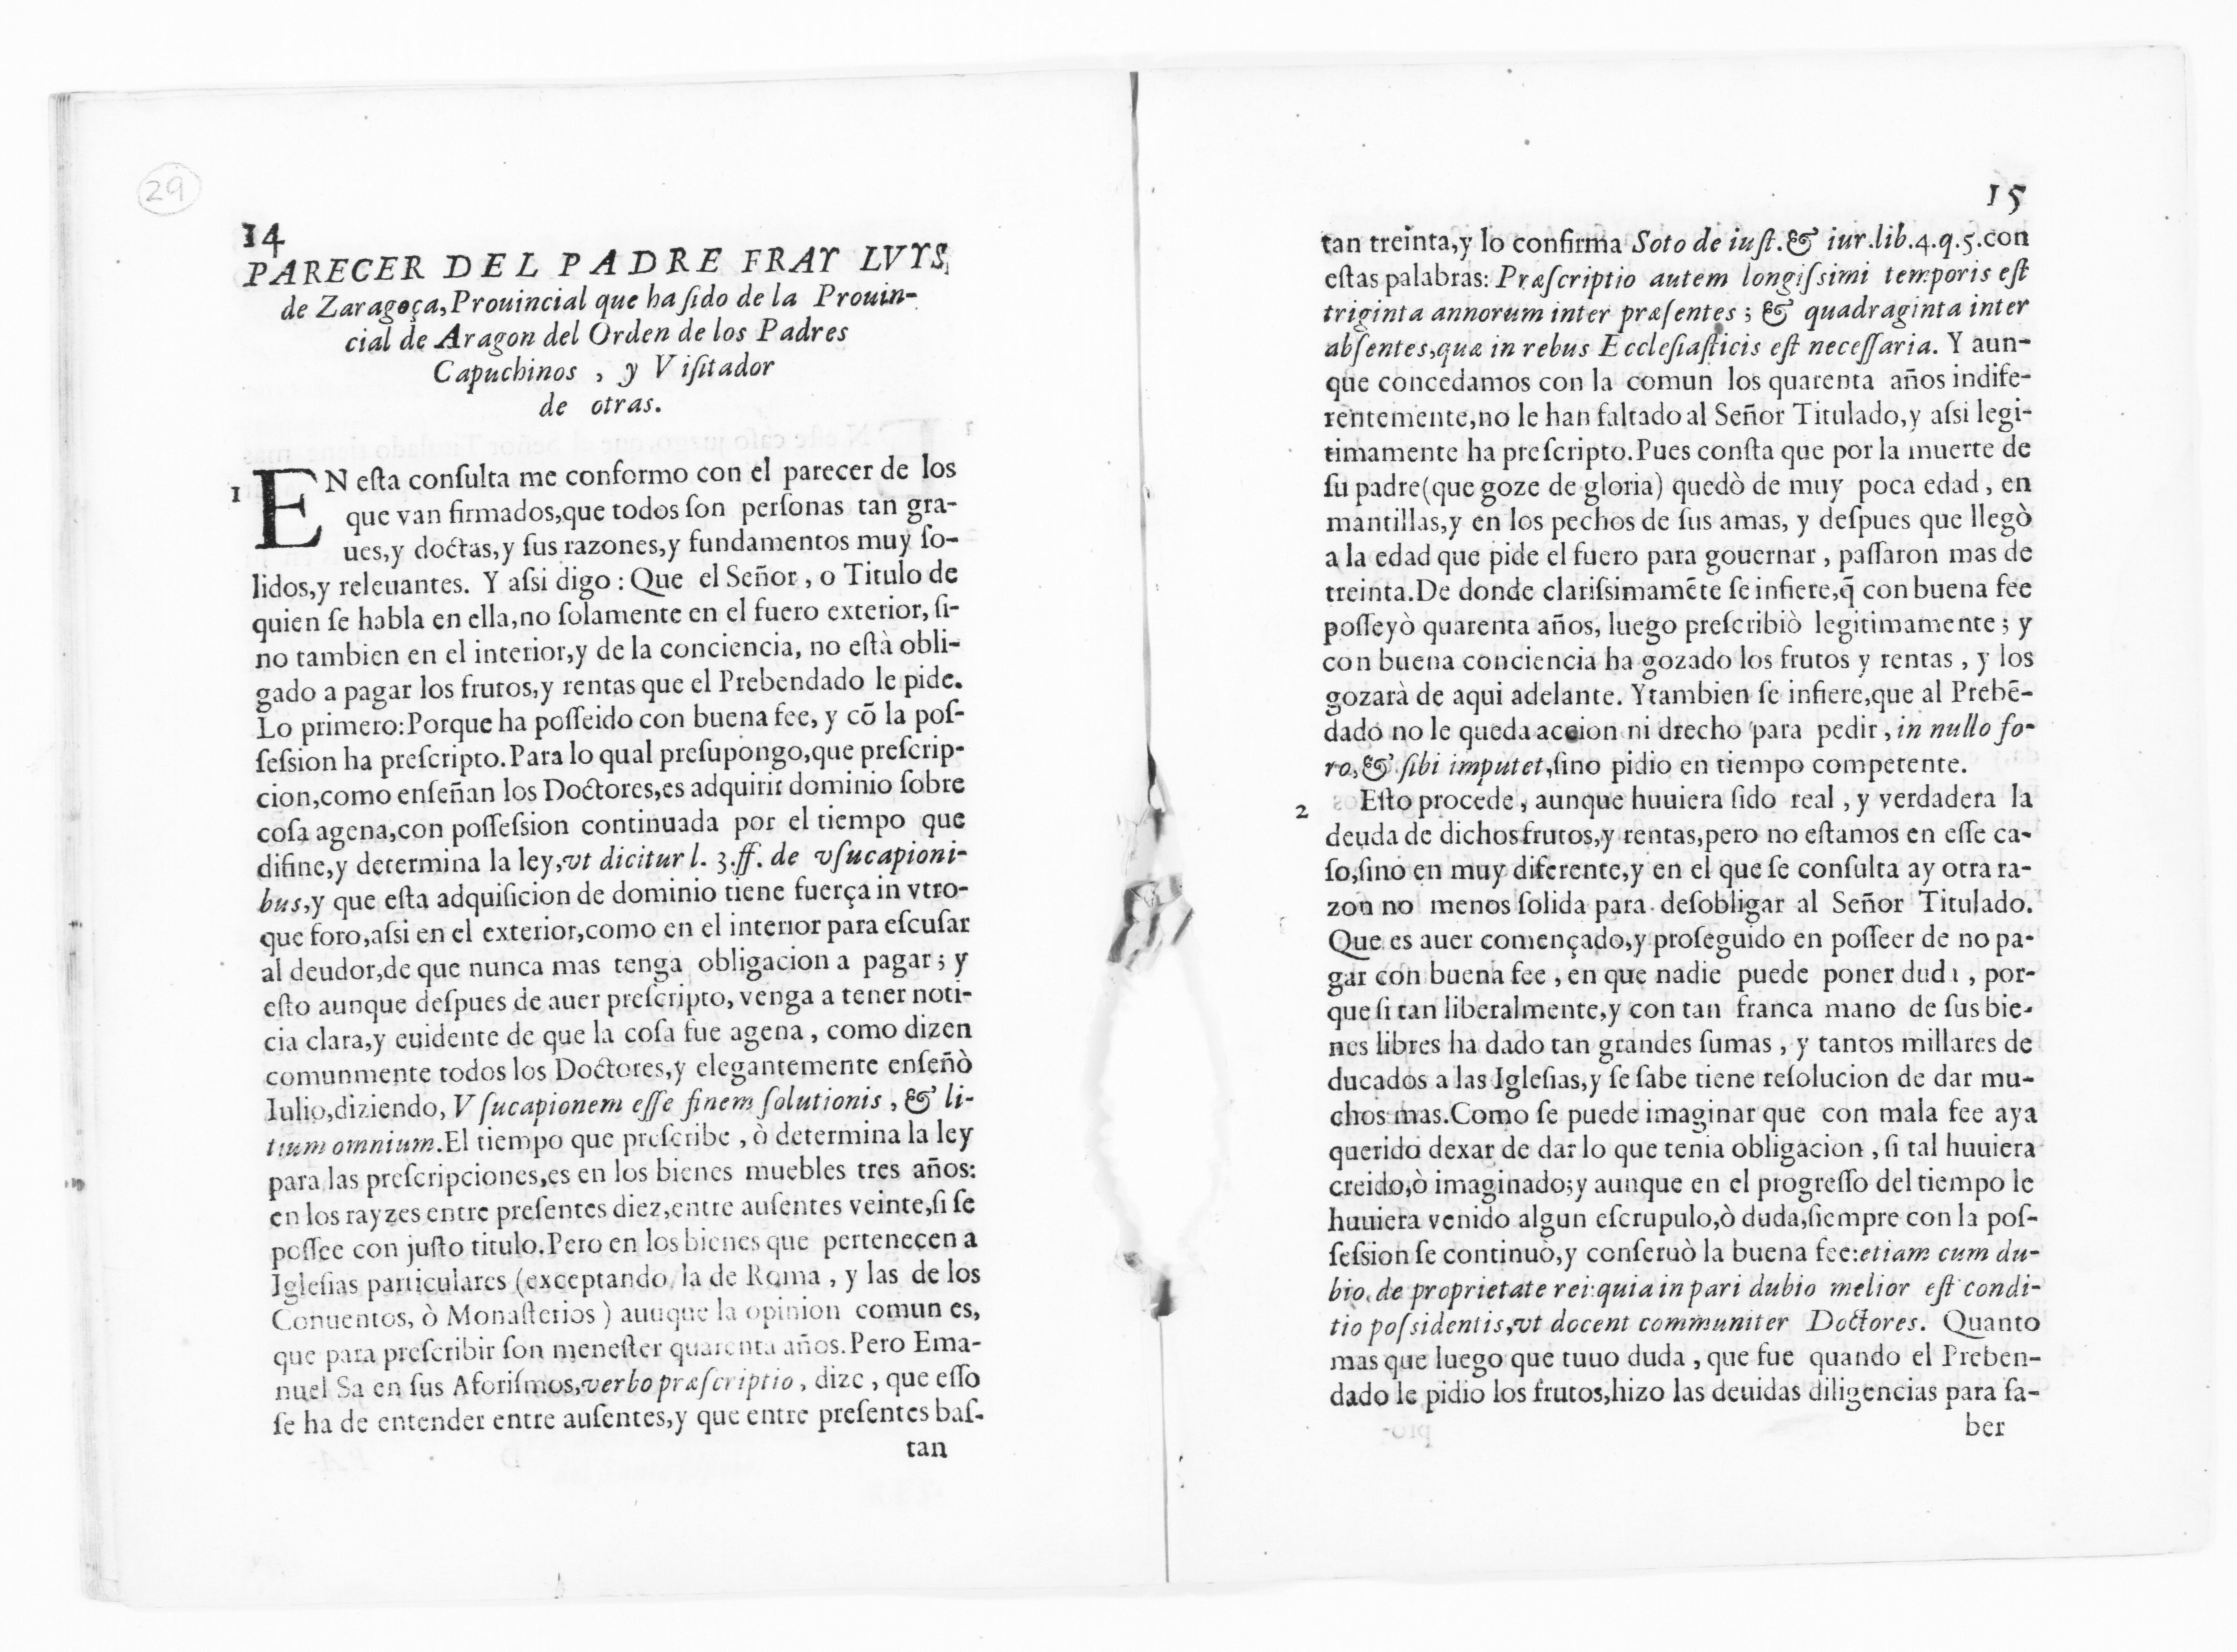 29
14
PARECER DEL PADRE FRAY LVYS,
de Zaragoça, Prouincial que ha ſido de la Prouin-
cial de Aragon del Orden de los Padres
Capuchinos , y Viſitador
de otras.
1 EN eſta conſulta me conformo con el parecer de los
que van firmados,que todos ſon perſonas tan gra-
ues,y doctas,y ſus razones,y fundamentos muy ſo-
lidos,y releuantes. Y aſsi digo : Que el Señor , o Titulo de
quien ſe habla en ella,no ſolamente en el fuero exterior, ſi-
no tambien en el interior,y de la conciencia, no eſtà obli-
gado a pagar los frutos,y rentas que el Prebendado le pide.
Lo primero:Porque ha poſſeido con buena fee, y cõ la poſ-
ſeſsion ha preſcripto.Para lo qual preſupongo,que preſcrip-
cion,como enſeñan los Doctores,es adquirir dominio ſobre
coſa agena,con poſſeſsion continuada por el tiempo que
difine,y determina la ley,vt dicitur l. 3.ff. de vſucapioni-
bus,y que eſta adquiſicion de dominio tiene fuerça in vtro-
que foro,aſsi en el exterior,como en el interior para eſcuſar
al deudor,de que nunca mas tenga obligacion a pagar; y
eſto aunque deſpues de auer preſcripto, venga a tener noti-
cia clara,y euidente de que la coſa fue agena , como dizen
comunmente todos los Doctores,y elegantemente enſeñò
Iulio,diziendo, Vſucapionem eſſe finem ſolutionis , & li-
tium omnium.El tiempo que preſcribe , ò determina la ley
para las preſcripciones,es en los bienes muebles tres años:
en los rayzes entre preſentes diez,entre auſentes veinte,ſi ſe
poſſee con juſto titulo.Pero en los bienes que pertenecen a
Igleſias particulares (exceptando la de Roma , y las de los
Conuentos, ò Monaſterios ) auuque la opinion comun es,
que para preſcribir ſon meneſter quarenta años.Pero Ema-
nuel Sa en ſus Aforiſmos,verbo præſcriptio , dize , que eſſo
ſe ha de entender entre auſentes,y que entre preſentes baſ-
tan
15
tan treinta,y lo confirma Soto de iuſt.& iur.lib.4.q.5.con
eſtas palabras: Præſcriptio autem longiſsimi temporis eſt
triginta annorum inter præſentes ; & quadraginta inter
abſentes,quæ in rebus Eccleſiaſticis eſt neceſſaria. Y aun-
que concedamos con la comun los quarenta años indife-
rentemente,no le han faltado al Señor Titulado,y aſsi legi-
timamente ha preſcripto.Pues conſta que por la muerte de
ſu padre(que goze de gloria) quedò de muy poca edad , en
mantillas,y en los pechos de ſus amas, y deſpues que llegò
a la edad que pide el fuero para gouernar , paſſaron mas de
treinta.De donde clariſsimamẽte ſe infiere,q̃ con buena fee
poſſeyò quarenta años, luego preſcribiò legitimamente ; y
con buena conciencia ha gozado los frutos y rentas , y los
gozarà de aqui adelante. Y tambien ſe infiere,que al Prebẽ-
dado no le queda accion ni drecho para pedir , in nullo fo-
ro, & ſibi imputet,ſino pidio en tiempo competente.
2 Eſto procede , aunque huuiera ſido real , y verdadera la
deuda de dichos frutos,y rentas,pero no eſtamos en eſſe ca-
ſo,ſino en muy diferente,y en el que ſe conſulta ay otra ra-
zon no menos ſolida para deſobligar al Señor Titulado.
Que es auer començado,y proſeguido en poſſeer de no pa-
gar con buena fee , en que nadie puede poner duda , por-
que ſi tan liberalmente,y con tan franca mano de ſus bie-
nes libres ha dado tan grandes ſumas , y tantos millares de
ducados a las Igleſias,y ſe ſabe tiene reſolucion de dar mu-
chos mas.Como ſe puede imaginar que con mala fee aya
querido dexar de dar lo que tenia obligacion , ſi tal huuiera
creido,ò imaginado;y aunque en el progreſſo del tiempo le
huuiera venido algun eſcrupulo,ò duda,ſiempre con la poſ-
ſeſsion ſe continuò,y conſeruò la buena fee:etiam cum du-
bio de proprietate rei:quia in pari dubio melior eſt condi-
tio poſsidentis,vt docent communiter Doctores. Quanto
mas que luego que tuuo duda , que fue quando el Preben-
dado le pidio los frutos,hizo las deuidas diligencias para ſa-
ber